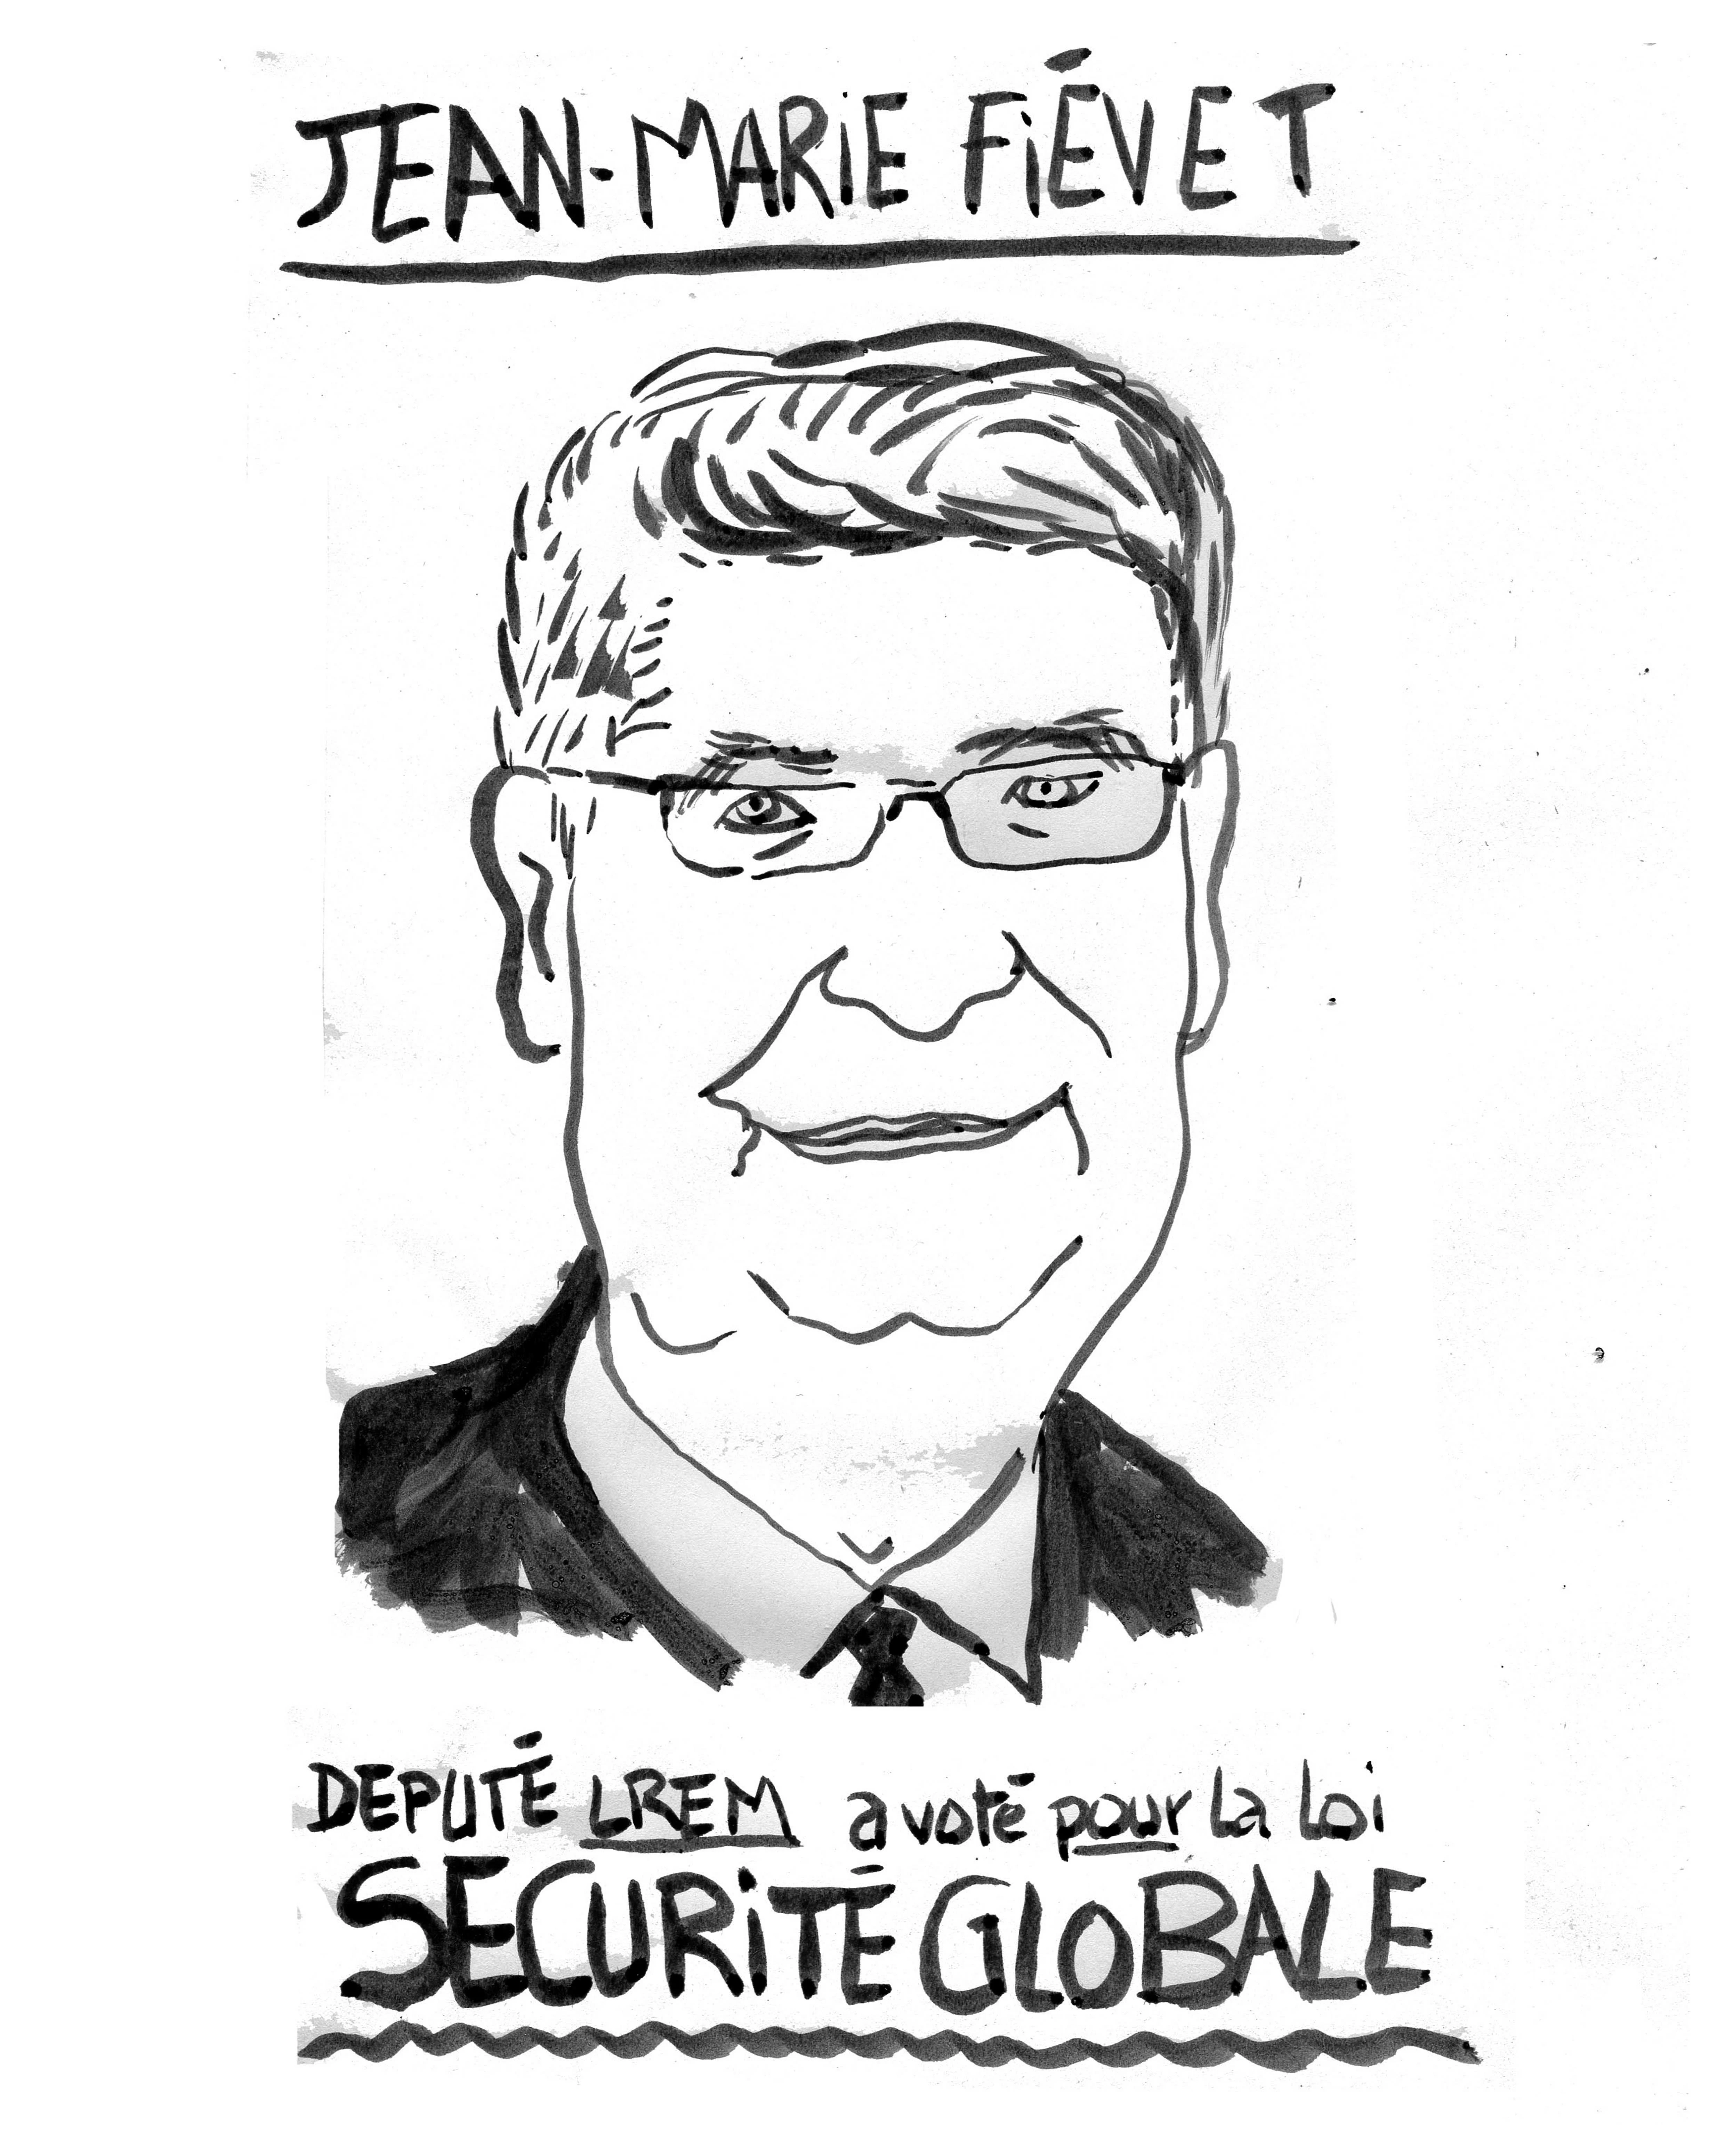 JEAN-MARiE FiÉVET
DEPUTÉ LREM a voté pour la loi
SECURiTÉ GLOBALE